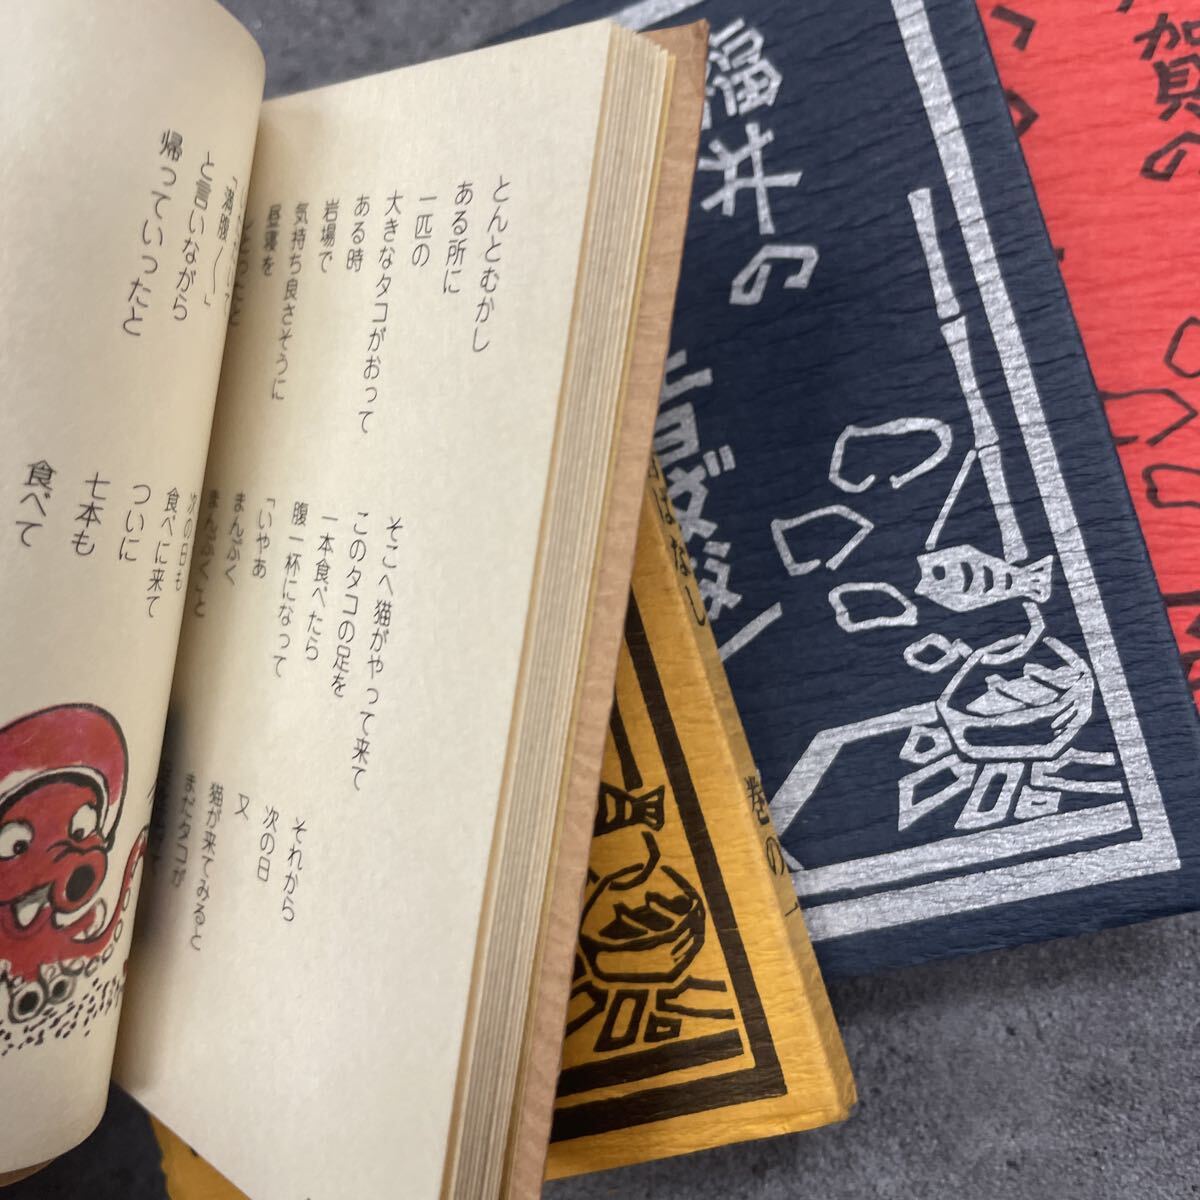 とんとむかし
ある所に
一匹の
大きなタコがおって
ある時
岩場で
気持ち良さそうに
昼寝を
しとったと
そこへ猫がやって来て
このタコの足を
一本食べたら
腹一杯になって
「いやあ
まんぷく
まんぷくこと
それから
次の日
又
猫が来てみると
まだタコが
と言いながら
帰っていったと
次の日も
食べに来て
ついに
七本も
食べて
福井の
昔ばなし
賀の
はなし
巻の一